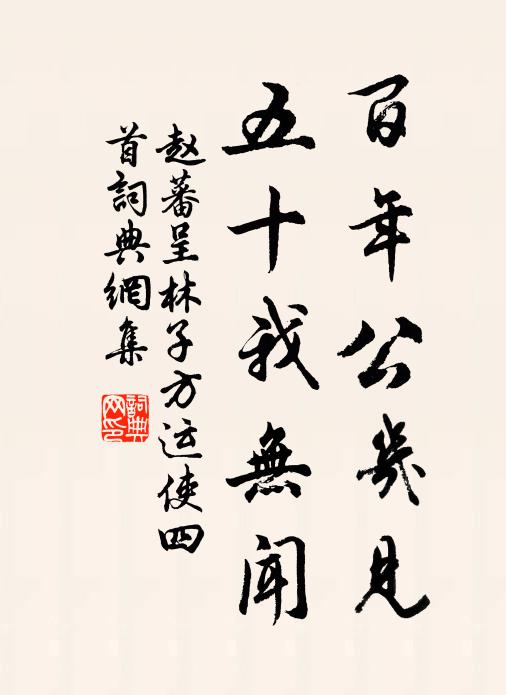 百年公几見
五十我無聞
赵蕃呈林子方运使四
首詞典網集
詞典
网印